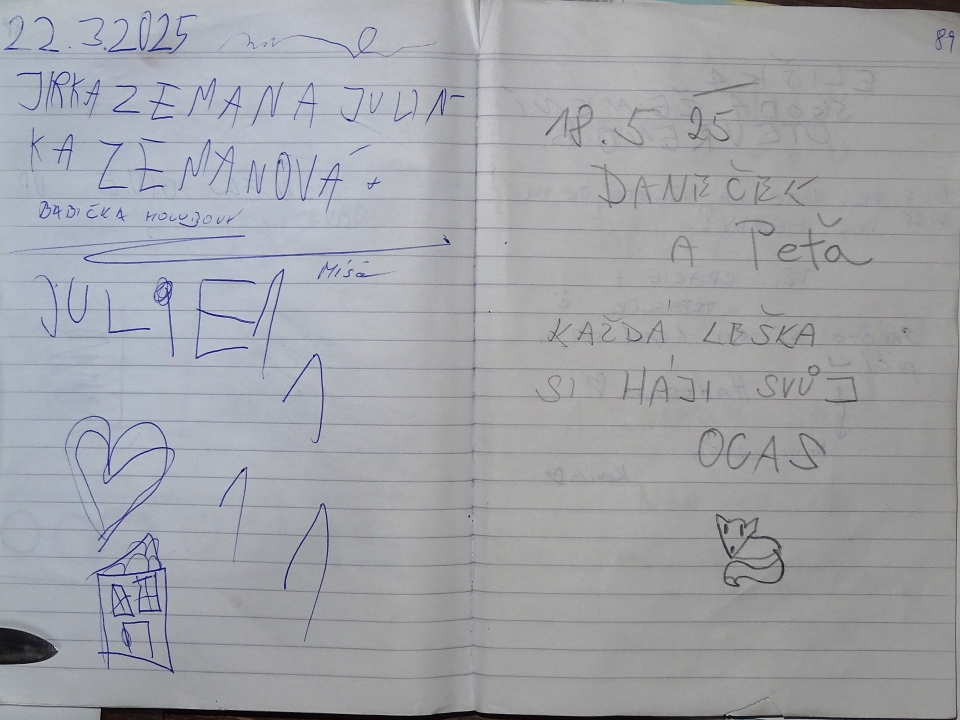 22.3.2025
JIRKA ZEMANA JULIN
KA ZEMANOVÁ +
BABIČKA HOLUBOVA
Míša
JULIE 1
1
1
1
89
18.5 25
DANEČEK
A Peťa
KAŽDÁ LEŠKA
SI HÁJI SVŮJ
OCAS